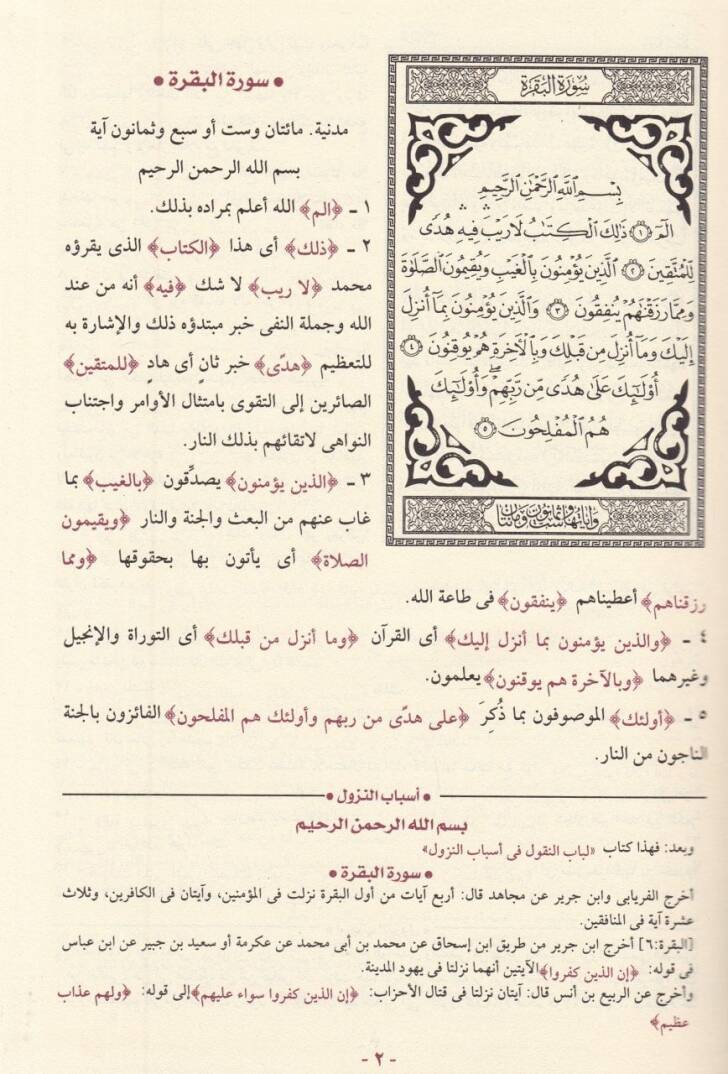 سُورَةُ البَقَرَة
بِسْمِ ٱللَّهِ ٱلرَّحْمَٰنِ ٱلرَّحِيمِ
الٓمٓ ﴿١﴾ ذَٰلِكَ ٱلْكِتَٰبُ لَا رَيْبَ ۛ فِيهِ ۛ هُدًى
لِّلْمُتَّقِينَ ﴿٢﴾ ٱلَّذِينَ يُؤْمِنُونَ بِٱلْغَيْبِ وَيُقِيمُونَ ٱلصَّلَوٰةَ
وَمِمَّا رَزَقْنَٰهُمْ يُنفِقُونَ ﴿٣﴾ وَٱلَّذِينَ يُؤْمِنُونَ بِمَآ أُنزِلَ
إِلَيْكَ وَمَآ أُنزِلَ مِن قَبْلِكَ وَبِٱلْأَخِرَةِ هُمْ يُوقِنُونَ ﴿٤﴾
أُو۟لَٰٓئِكَ عَلَىٰ هُدًى مِّن رَّبِّهِمْ ۖ وَأُو۟لَٰٓئِكَ
هُمُ ٱلْمُفْلِحُونَ ﴿٥﴾
وآياتها ست وثمانون ومائتان
• سورة البقرة •
مدنية. مائتان وست أو سبع وثمانون آية
بسم الله الرحمن الرحيم
١ - ﴿الم﴾ الله أعلم بمراده بذلك.
٢ - ﴿ذلك﴾ أى هذا ﴿الكتاب﴾ الذى يقرؤه
محمد ﴿لا ريب﴾ لا شك ﴿فيه﴾ أنه من عند
الله وجملة النفى خبر مبتدؤه ذلك والإشارة به
للتعظيم ﴿هدًى﴾ خبر ثانٍ أى هادٍ ﴿للمتقين﴾
الصائرين إلى التقوى بامتثال الأوامر واجتناب
النواهى لاتقائهم بذلك النار.
٣ - ﴿الذين يؤمنون﴾ يصدِّقون ﴿بالغيب﴾ بما
غاب عنهم من البعث والجنة والنار ﴿ويقيمون
الصلاة﴾ أى يأتون بها بحقوقها ﴿ومما
رزقناهم﴾ أعطيناهم ﴿ينفقون﴾ فى طاعة الله.
٤ - ﴿والذين يؤمنون بما أنزل إليك﴾ أى القرآن ﴿وما أنزل من قبلك﴾ أى التوراة والإنجيل
وغيرهما ﴿وبالآخرة هم يوقنون﴾ يعلمون.
٥ - ﴿أولئك﴾ الموصوفون بما ذُكِرَ ﴿على هدًى من ربهم وأولئك هم المفلحون﴾ الفائزون بالجنة
الناجون من النار.
• أسباب النزول •
بسم الله الرحمن الرحيم
وبعد: فهذا كتاب «لباب النقول فى أسباب النزول»
• سورة البقرة •
أخرج الفريابى وابن جرير عن مجاهد قال: أربع آيات من أول البقرة نزلت فى المؤمنين، وآيتان فى الكافرين، وثلاث
عشرة آية فى المنافقين.
[البقرة:٦] أخرج ابن جرير من طريق ابن إسحاق عن محمد بن أبى محمد عن عكرمة أو سعيد بن جبير عن ابن عباس
فى قوله: ﴿إن الذين كفروا﴾ الآيتين أنهما نزلتا فى يهود المدينة.
وأخرج عن الربيع بن أنس قال: آيتان نزلتا فى قتال الأحزاب: ﴿إن الذين كفروا سواء عليهم﴾ إلى قوله: ﴿ولهم عذاب
عظيم﴾
- ٢ -